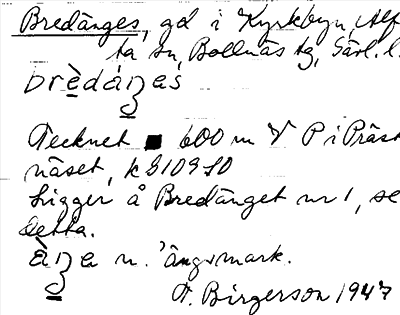 Bredänges, gd i Kyrkbyn, Alf
ta sn, Bollnäs tg, Gävl. l.
brèdáŋas
Tecknet ■ 600 m V P i Präst
näset, k 9109 SO
Ligger å Bredänget nr 1, se
detta.
àŋa n. 'ängsmark.
F. Birgerson 1947